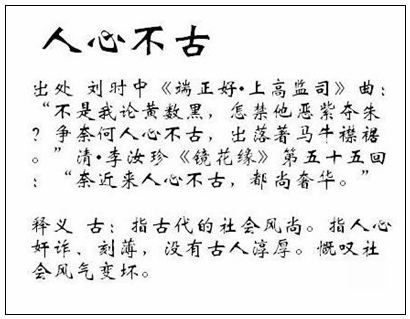 人心不古
出处 刘时中《端正好·上高监司》曲：
“不是我论黄数黑，怎禁他恶紫夺朱
？争奈何人心不古，出落著马牛襟裾
。”清·李汝珍《镜花缘》第五十五回
：“奈近来人心不古，都尚奢华。”
释义 古：指古代的社会风尚。指人心
奸诈、刻薄，没有古人淳厚。慨叹社
会风气变坏。